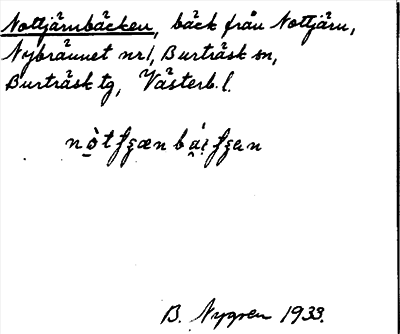 Nottjärnbäcken, bäck från Nottjärn,
Nybrännet nr1, Burträsk sn,
Burträsk tg, Västerb. l.
B. Nygren 1933.